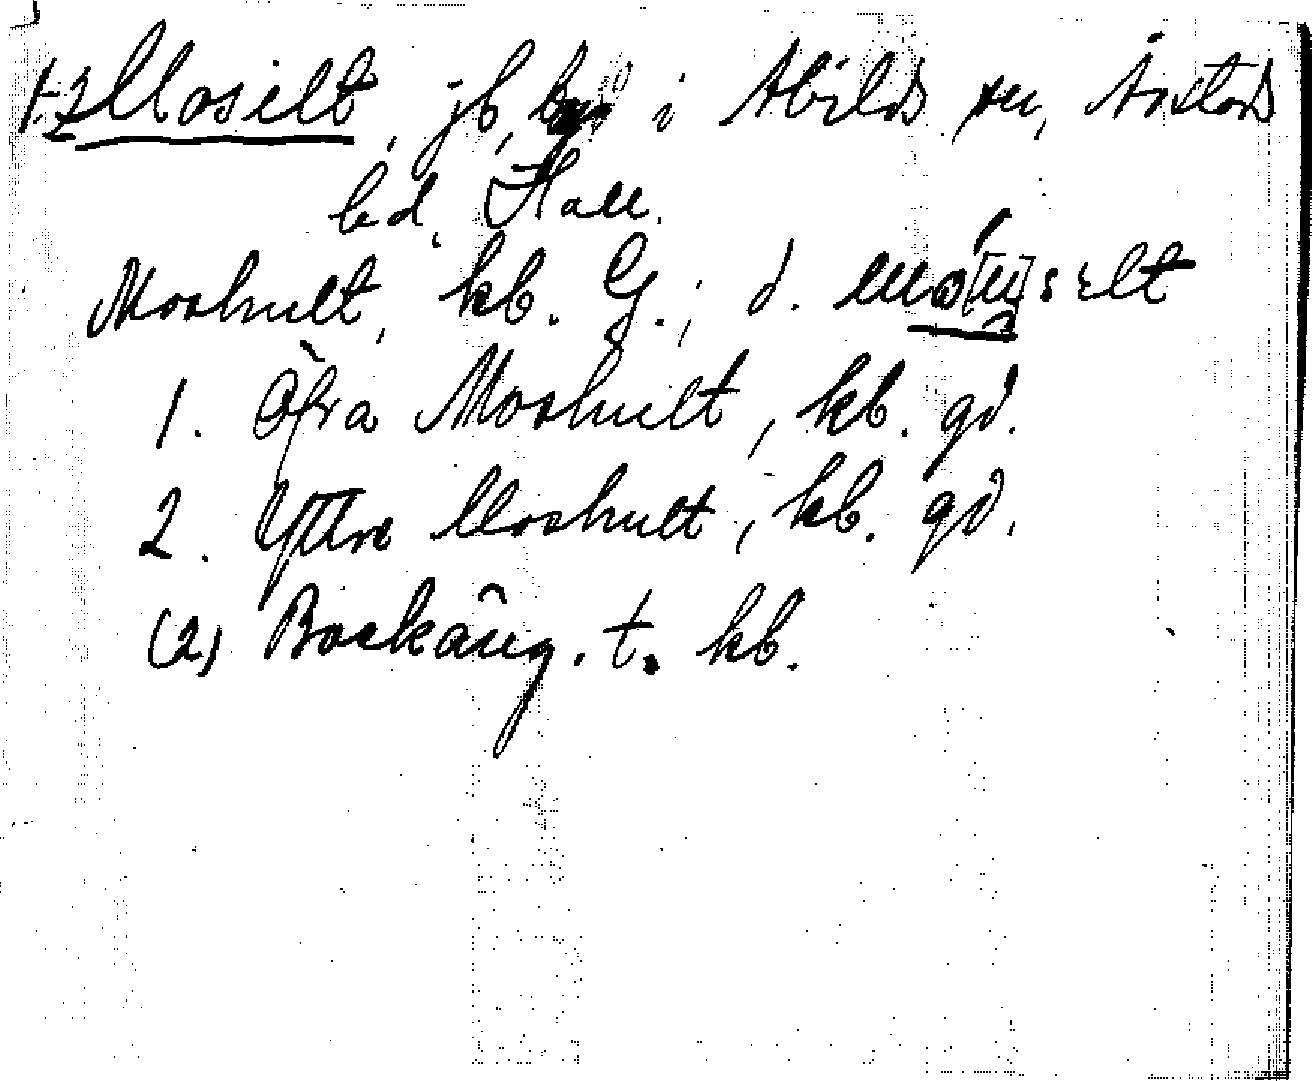 1-2 Mosilt, jb, i Abilds sn, Årstads
hd. Hall.
Moshult, kb. G.; d. selt
1. Öfra Moshult, kb. gd.
2. Yttre Moshult, kb. gd.
(2) Bockäng. t. kb.